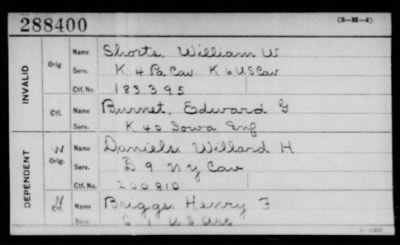 288400
(3-M-4)
INVALID
Orig Name Shorts, William W
Serv. K 4 Pa Cav K 6 US Cav
Ctf. No. 183395
Ctf. Name Burnet, Edward G
Serv. K 40 Iowa Inf
DEPENDENT
W Orig. Name Daniels Willard H
Serv. D 9 NY Cav
Ctf. No. 200810
W Ctf. Name Briggs Henry F